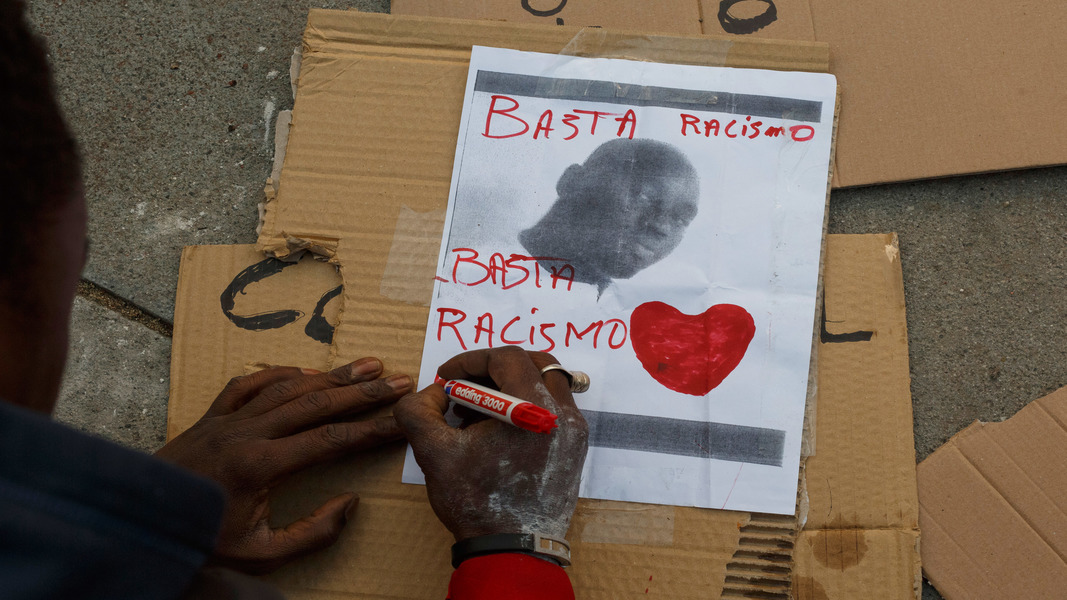 BASTA RACismO
BASTA
RACiSMO
edding 3000